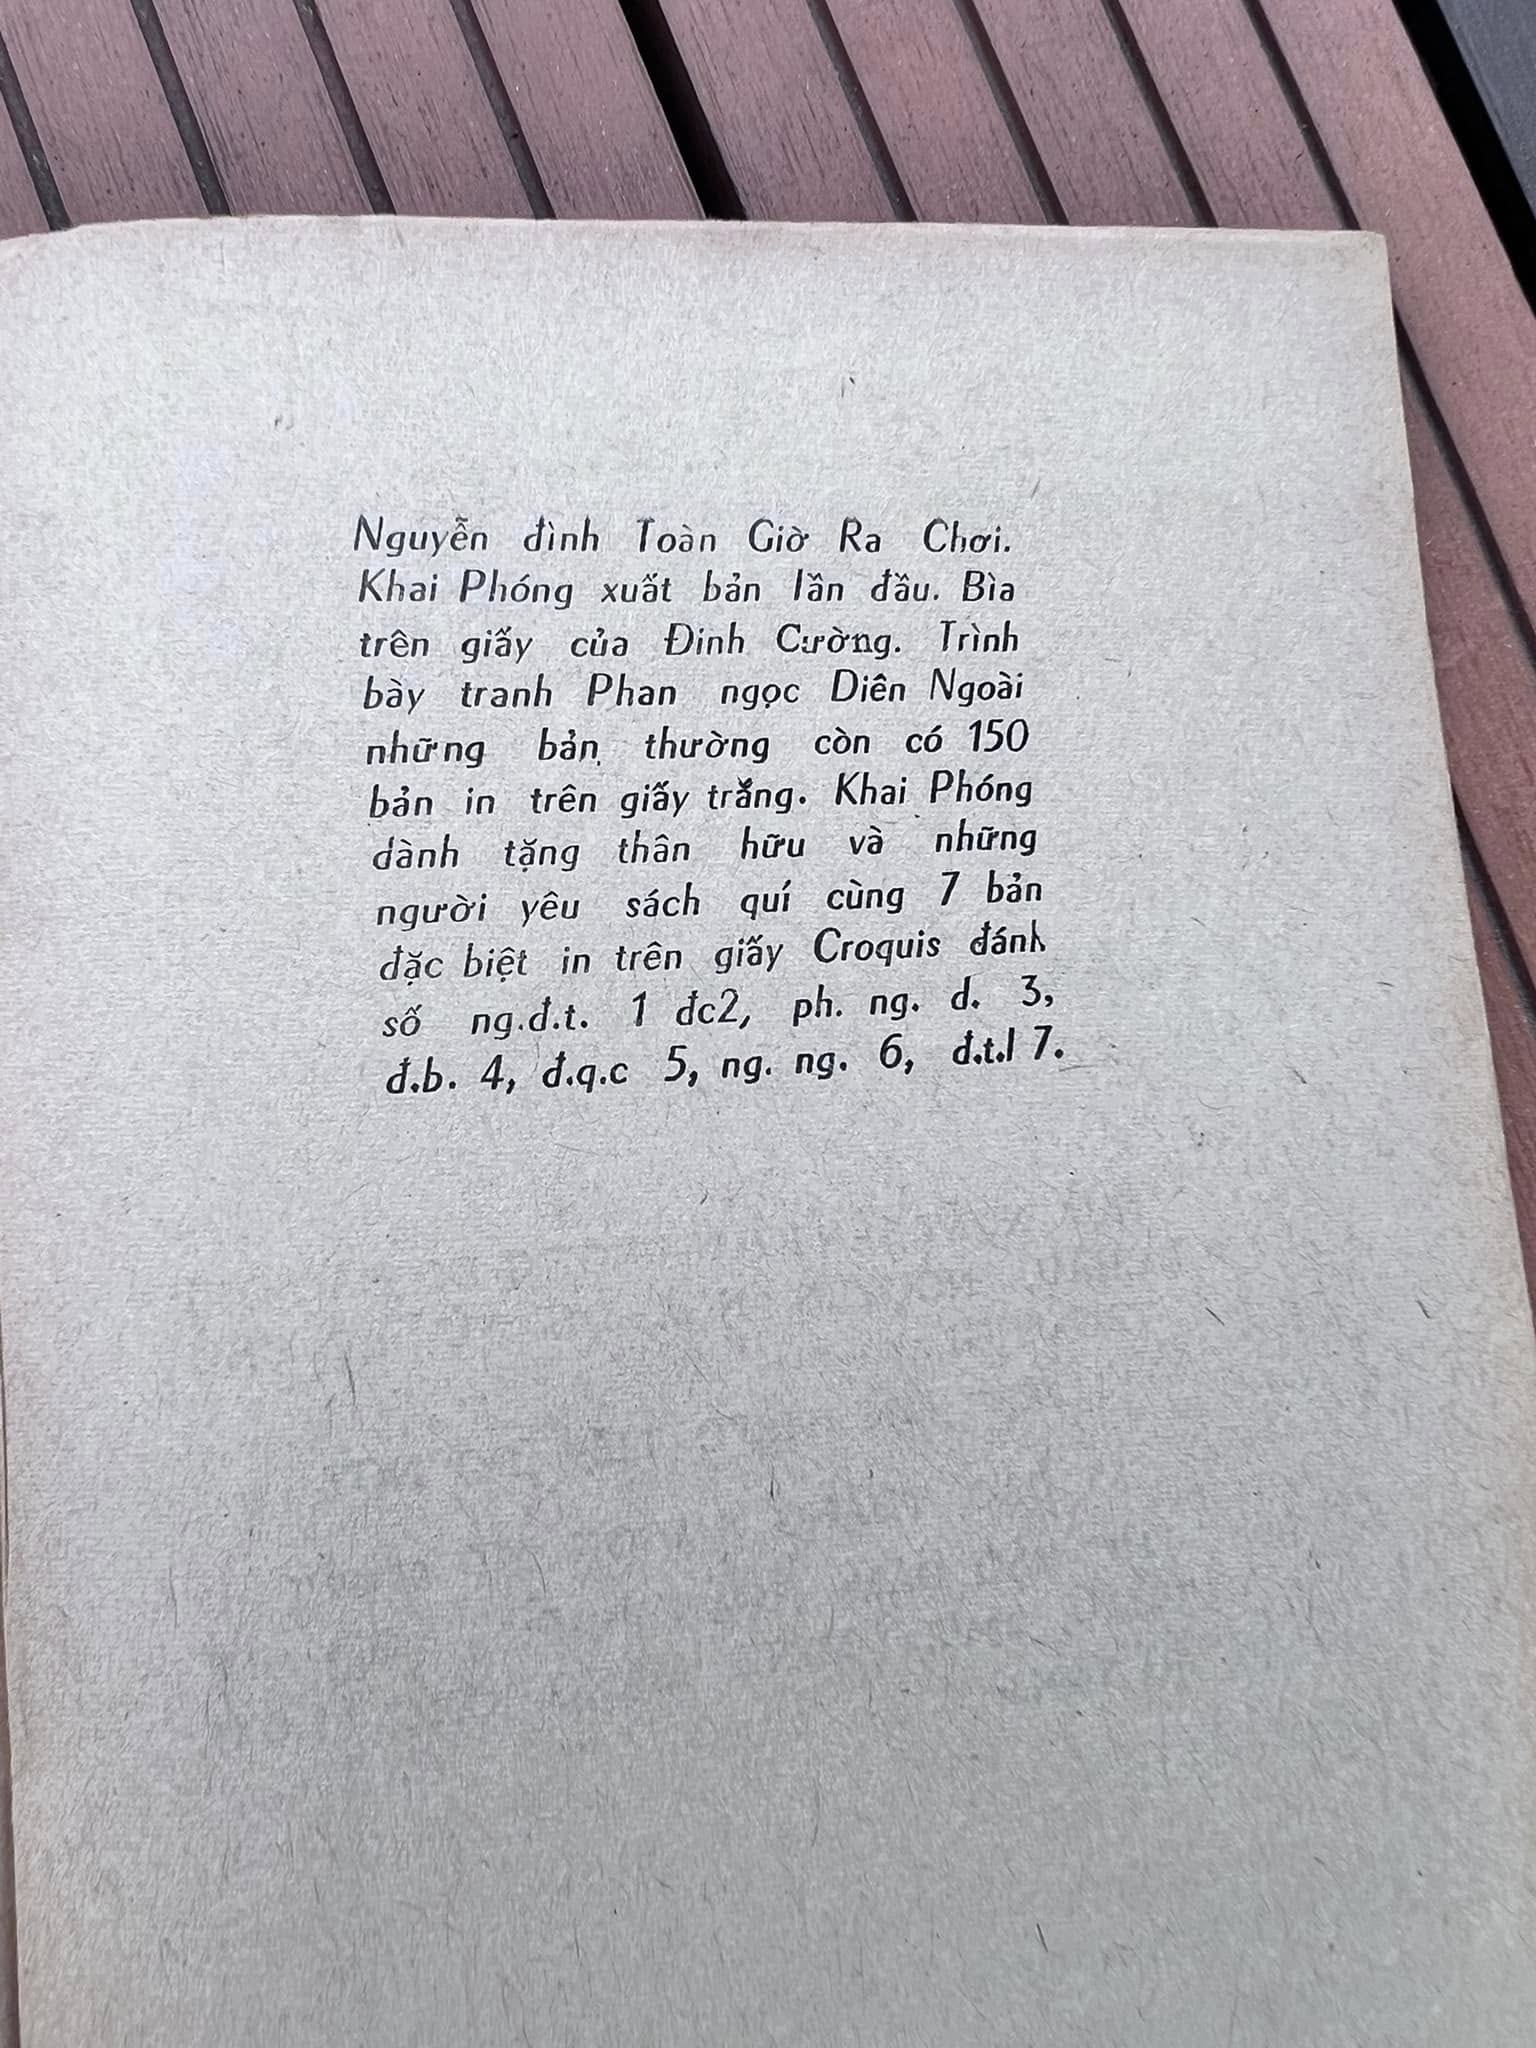 Nguyễn đình Toàn Giờ Ra Chơi.
Khai Phóng xuất bản lần đầu. Bìa
trên giấy của Đinh Cường. Trình
bày tranh Phan ngọc Diên Ngoài
những bản thường còn có 150
bản in trên giấy trắng. Khai Phóng
dành tặng thân hữu và những
người yêu sách quí cùng 7 bản
đặc biệt in trên giấy Croquis đánh
số ng.đ.t. 1 đc2, ph. ng. d. 3,
đ.b. 4, đ.q.c 5, ng. ng. 6, đ.t.l 7.